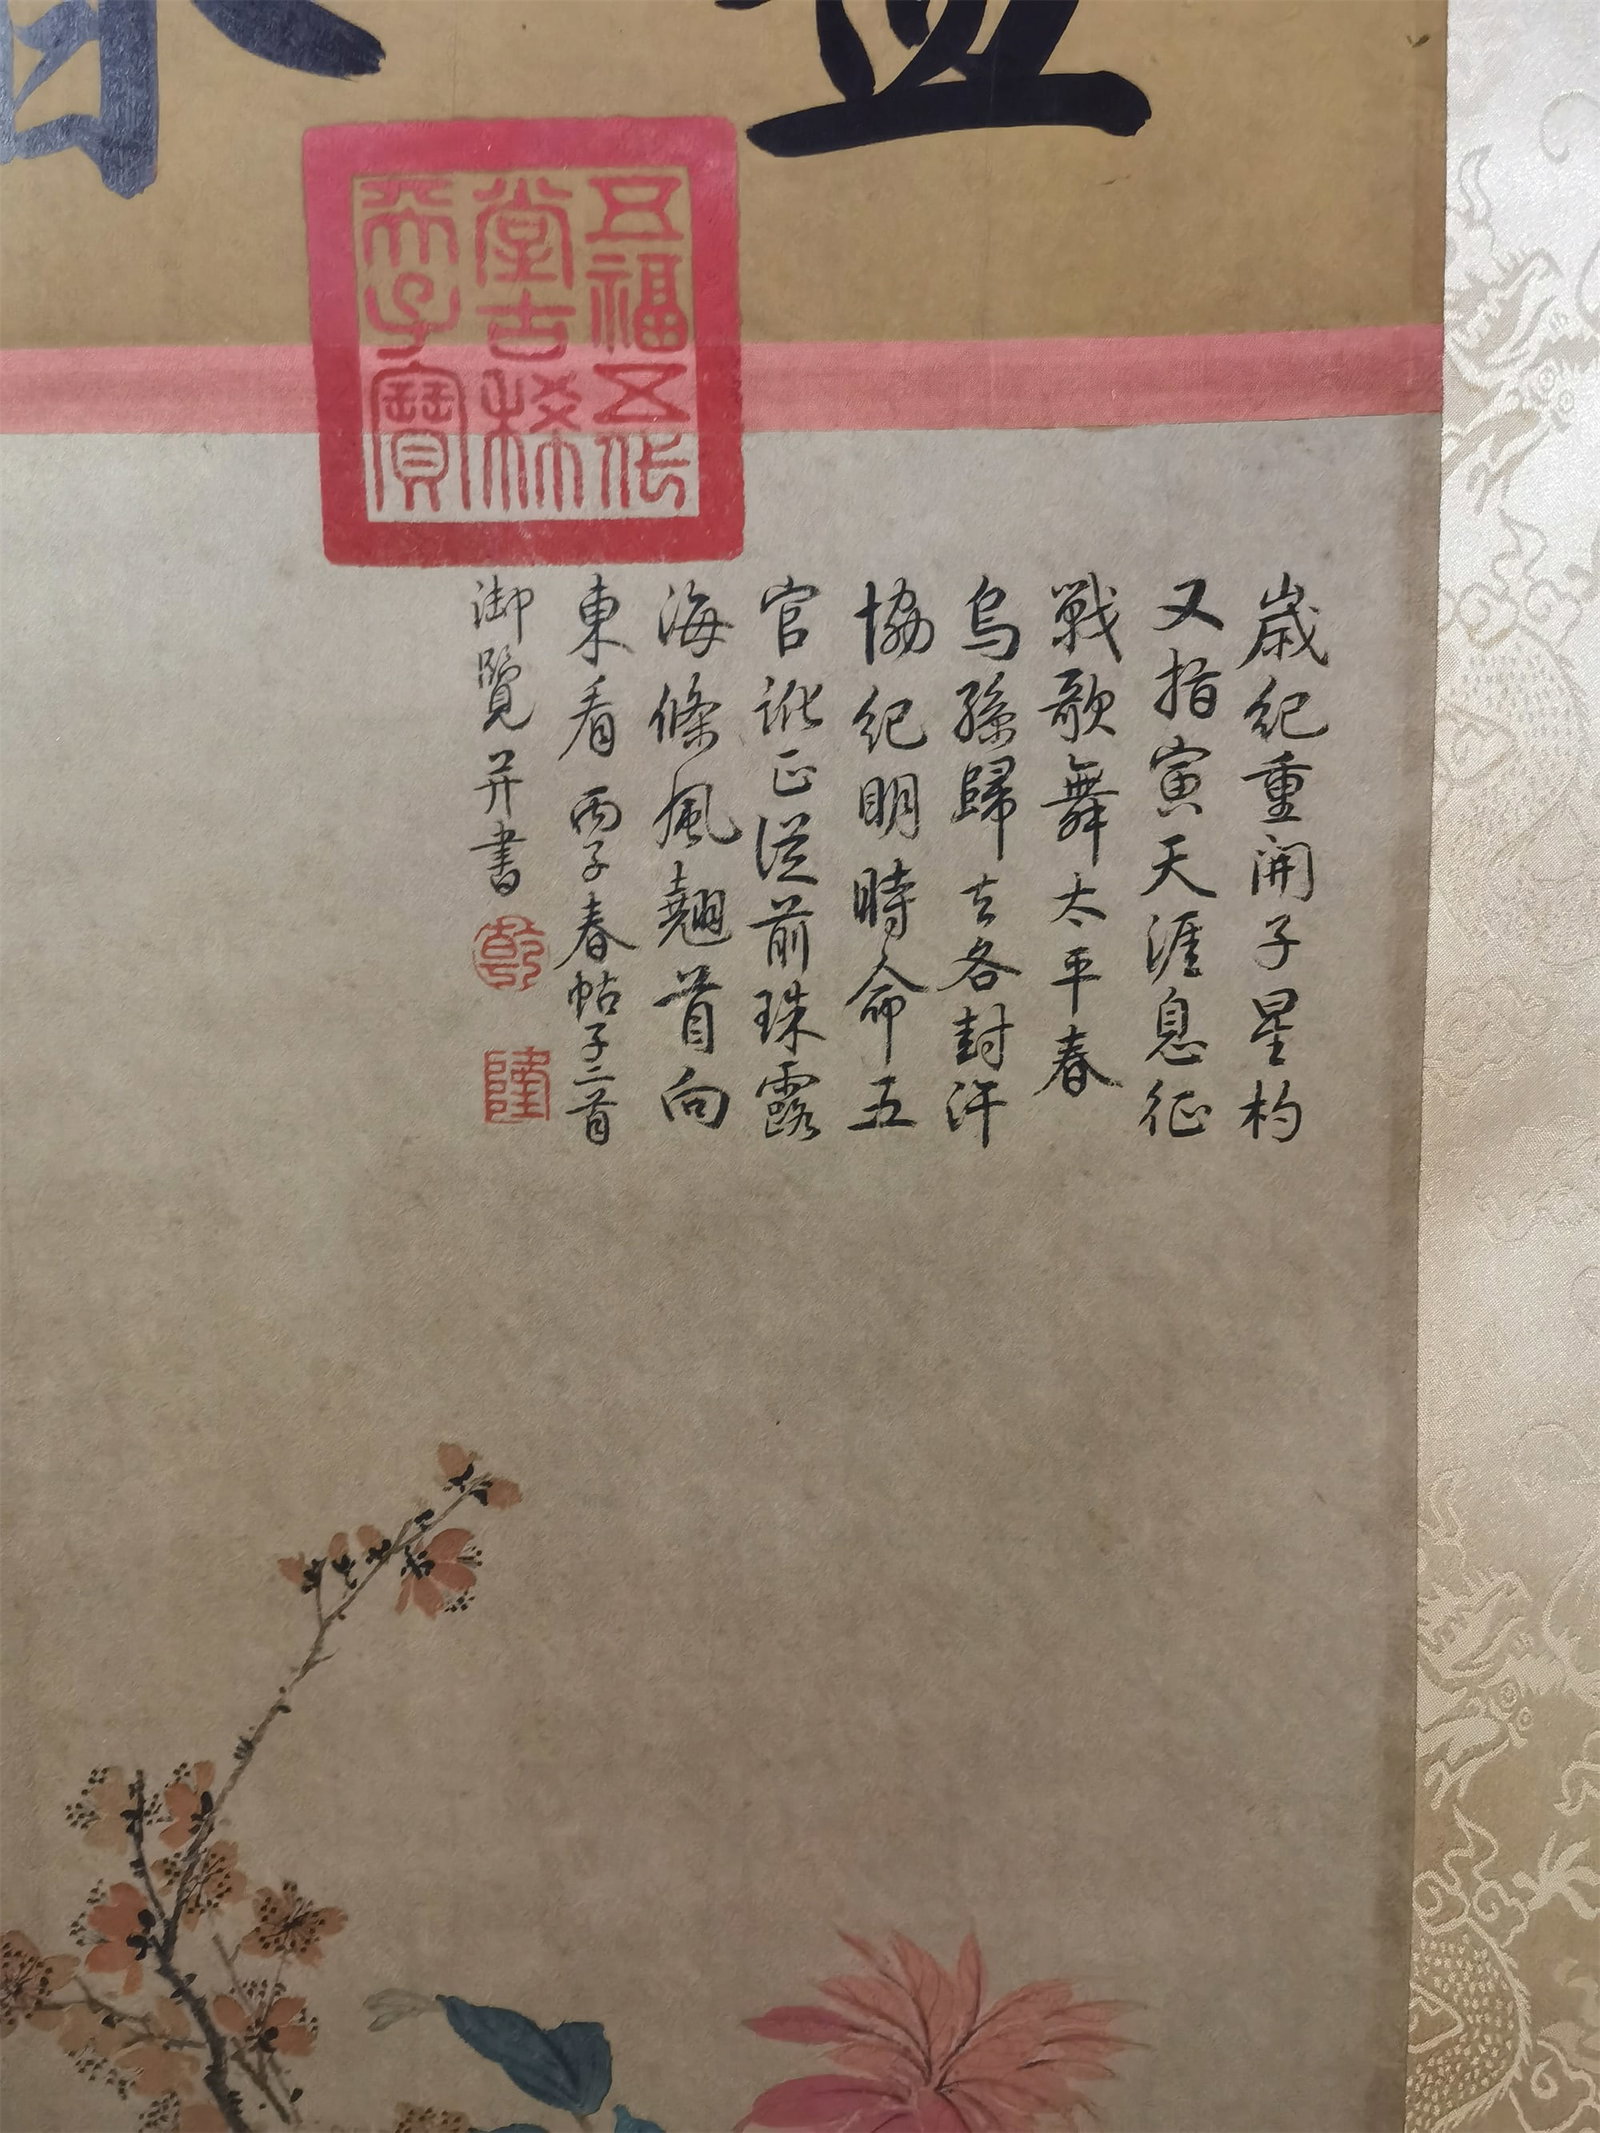 五福五代
堂古稀
天子寶
歲紀重開子星杓
又指寅天涯息征
戰歌舞太平春
烏孫歸去各封汗
協紀明時命五
官訛正從前珠露
海條風翹首向
東看 丙子春帖子二首
御覽并書
乾
隆